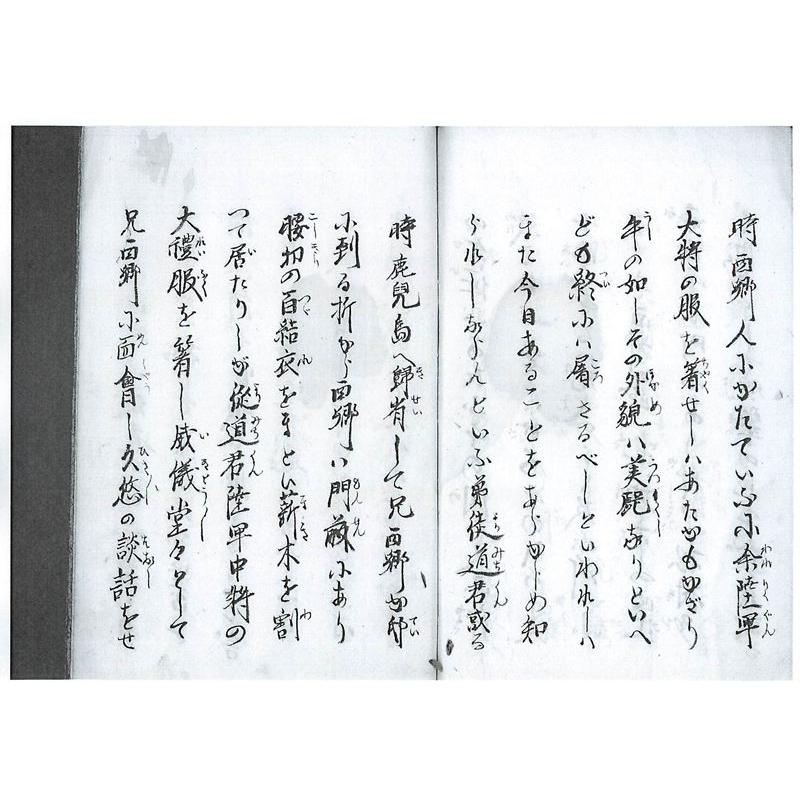 時西郷人にかたていふに余陸軍
大将の服を着せしハあたかもかざり
牛の如しその外貌ハ美麗なりといへ
ども終にハ屠さるべしといわれしハ
また今日あることをあらかじめ知
られしならんといふ弟従道君或る
時鹿児島へ歸省して兄西郷か邸
に到る折から西郷ハ門前にあり
腰切の百結衣をまとい薪木を割
つて居たりしが従道君陸軍中将の
大禮服を着し威儀堂々として
兄西郷に面會し久悠の談話をせ